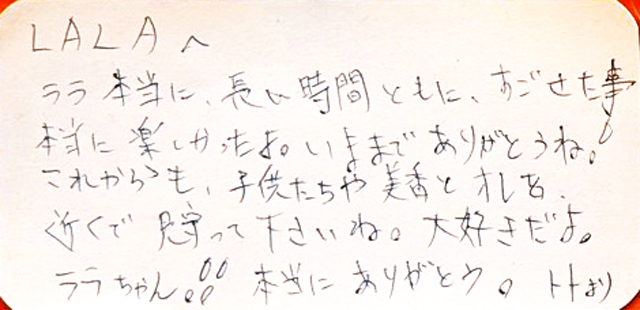 LALAへ
ララ本当に、長い時間ともに、すごせた事
本当に楽しかったよ。いままでありがとうね!
これからも、子供たちや美香とオレを、
近くで見守って下さいね。大好きだよ。
ララちゃん!! 本当にありがとう。トトより